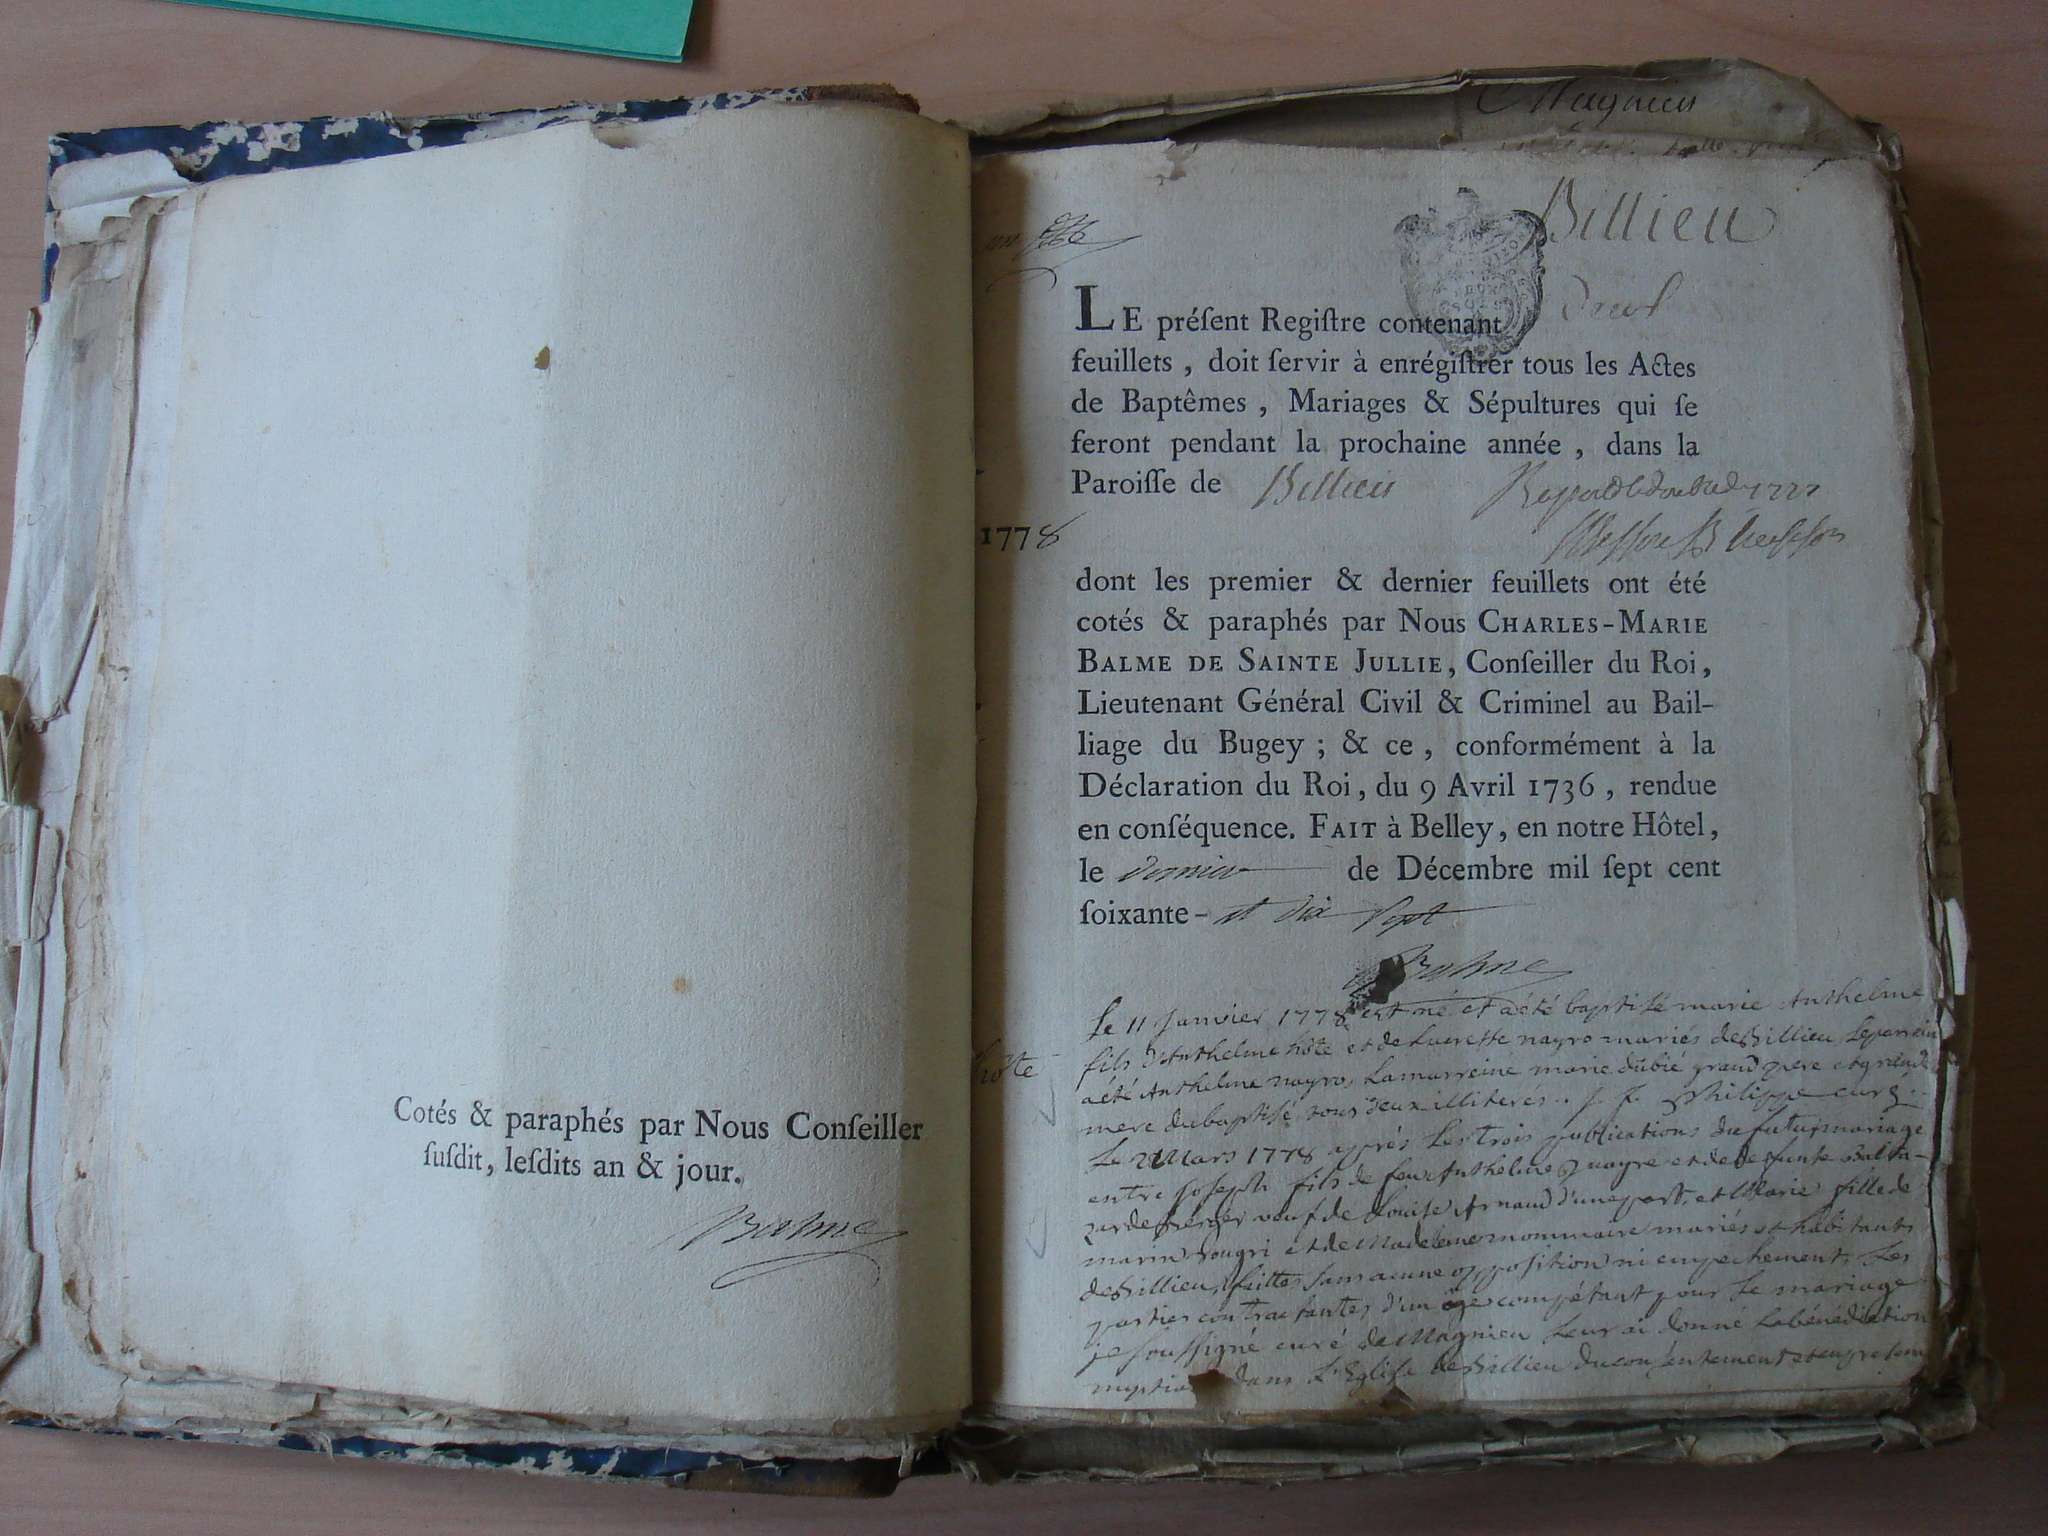 Cotés & paraphés par Nous Conſeiller
ſuſdit, leſdits an & jour.
Balme
Magnieu
Billieu
LE préſent Regiſtre contenant deux
feuillets , doit ſervir à enrégiſtrer tous les Actes
de Baptêmes , Mariages & Sépultures qui ſe
feront pendant la prochaine année , dans la
Paroiſſe de Billieu
1778
dont les premier & dernier feuillets ont été
cotés & paraphés par Nous CHARLES-MARIE
BALME DE SAINTE JULLIE, Conſeiller du Roi,
Lieutenant Général Civil & Criminel au Bail-
liage du Bugey ; & ce , conformément à la
Déclaration du Roi, du 9 Avril 1736 , rendue
en conſéquence. FAIT à Belley, en notre Hôtel,
le dernier de Décembre mil ſept cent
ſoixante- et dix ſept
Balme
le 11 janvier 1778 est né et a été baptisé marie Anthelme
fils d'Anthelme hôte et de Lucresse nayro mariés de Billieu, le parrain
hôte
a été Anthelme nayro, la marreine marie dubié grand pere et grande
mere du baptisé tous deux illiterés.. j. f. philippe curé.
Le 2 Mars 1778 après les trois publications du futur mariage
entre joseph fils de feu Anthelme nayre et de defunte Balta-
zarde Berger veuf de Louise Arnaud d'une part, et Marie fille de
marin et de Madeleine mommaire mariés et habitants
de Billieu, faittes sans aucune opposition ni empechement, Les
parties contractantes d'un age compétant pour le mariage
je soussigné curé de Magnieu leur ai donné la bénédiction
dans L'Eglise de Billieu du consentement et en